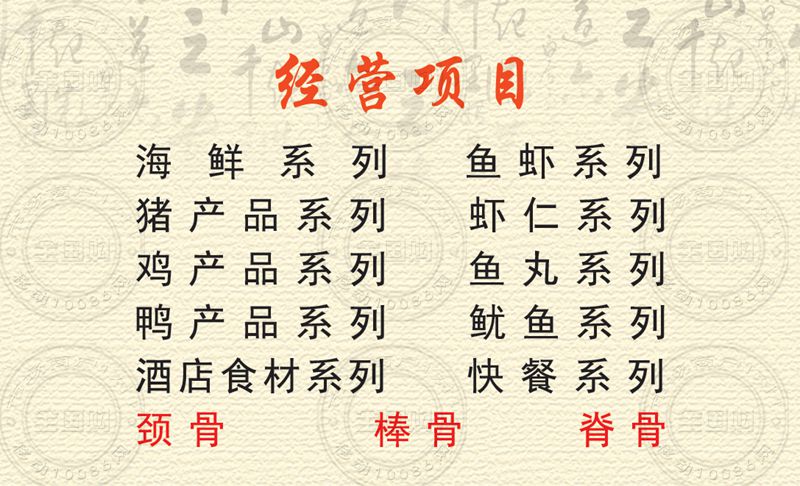 经营项目
海鲜系列 鱼虾系列
猪产品系列 虾仁系列
鸡产品系列 鱼丸系列
鸭产品系列 鱿鱼系列
酒店食材系列 快餐系列
颈骨 棒骨 脊骨